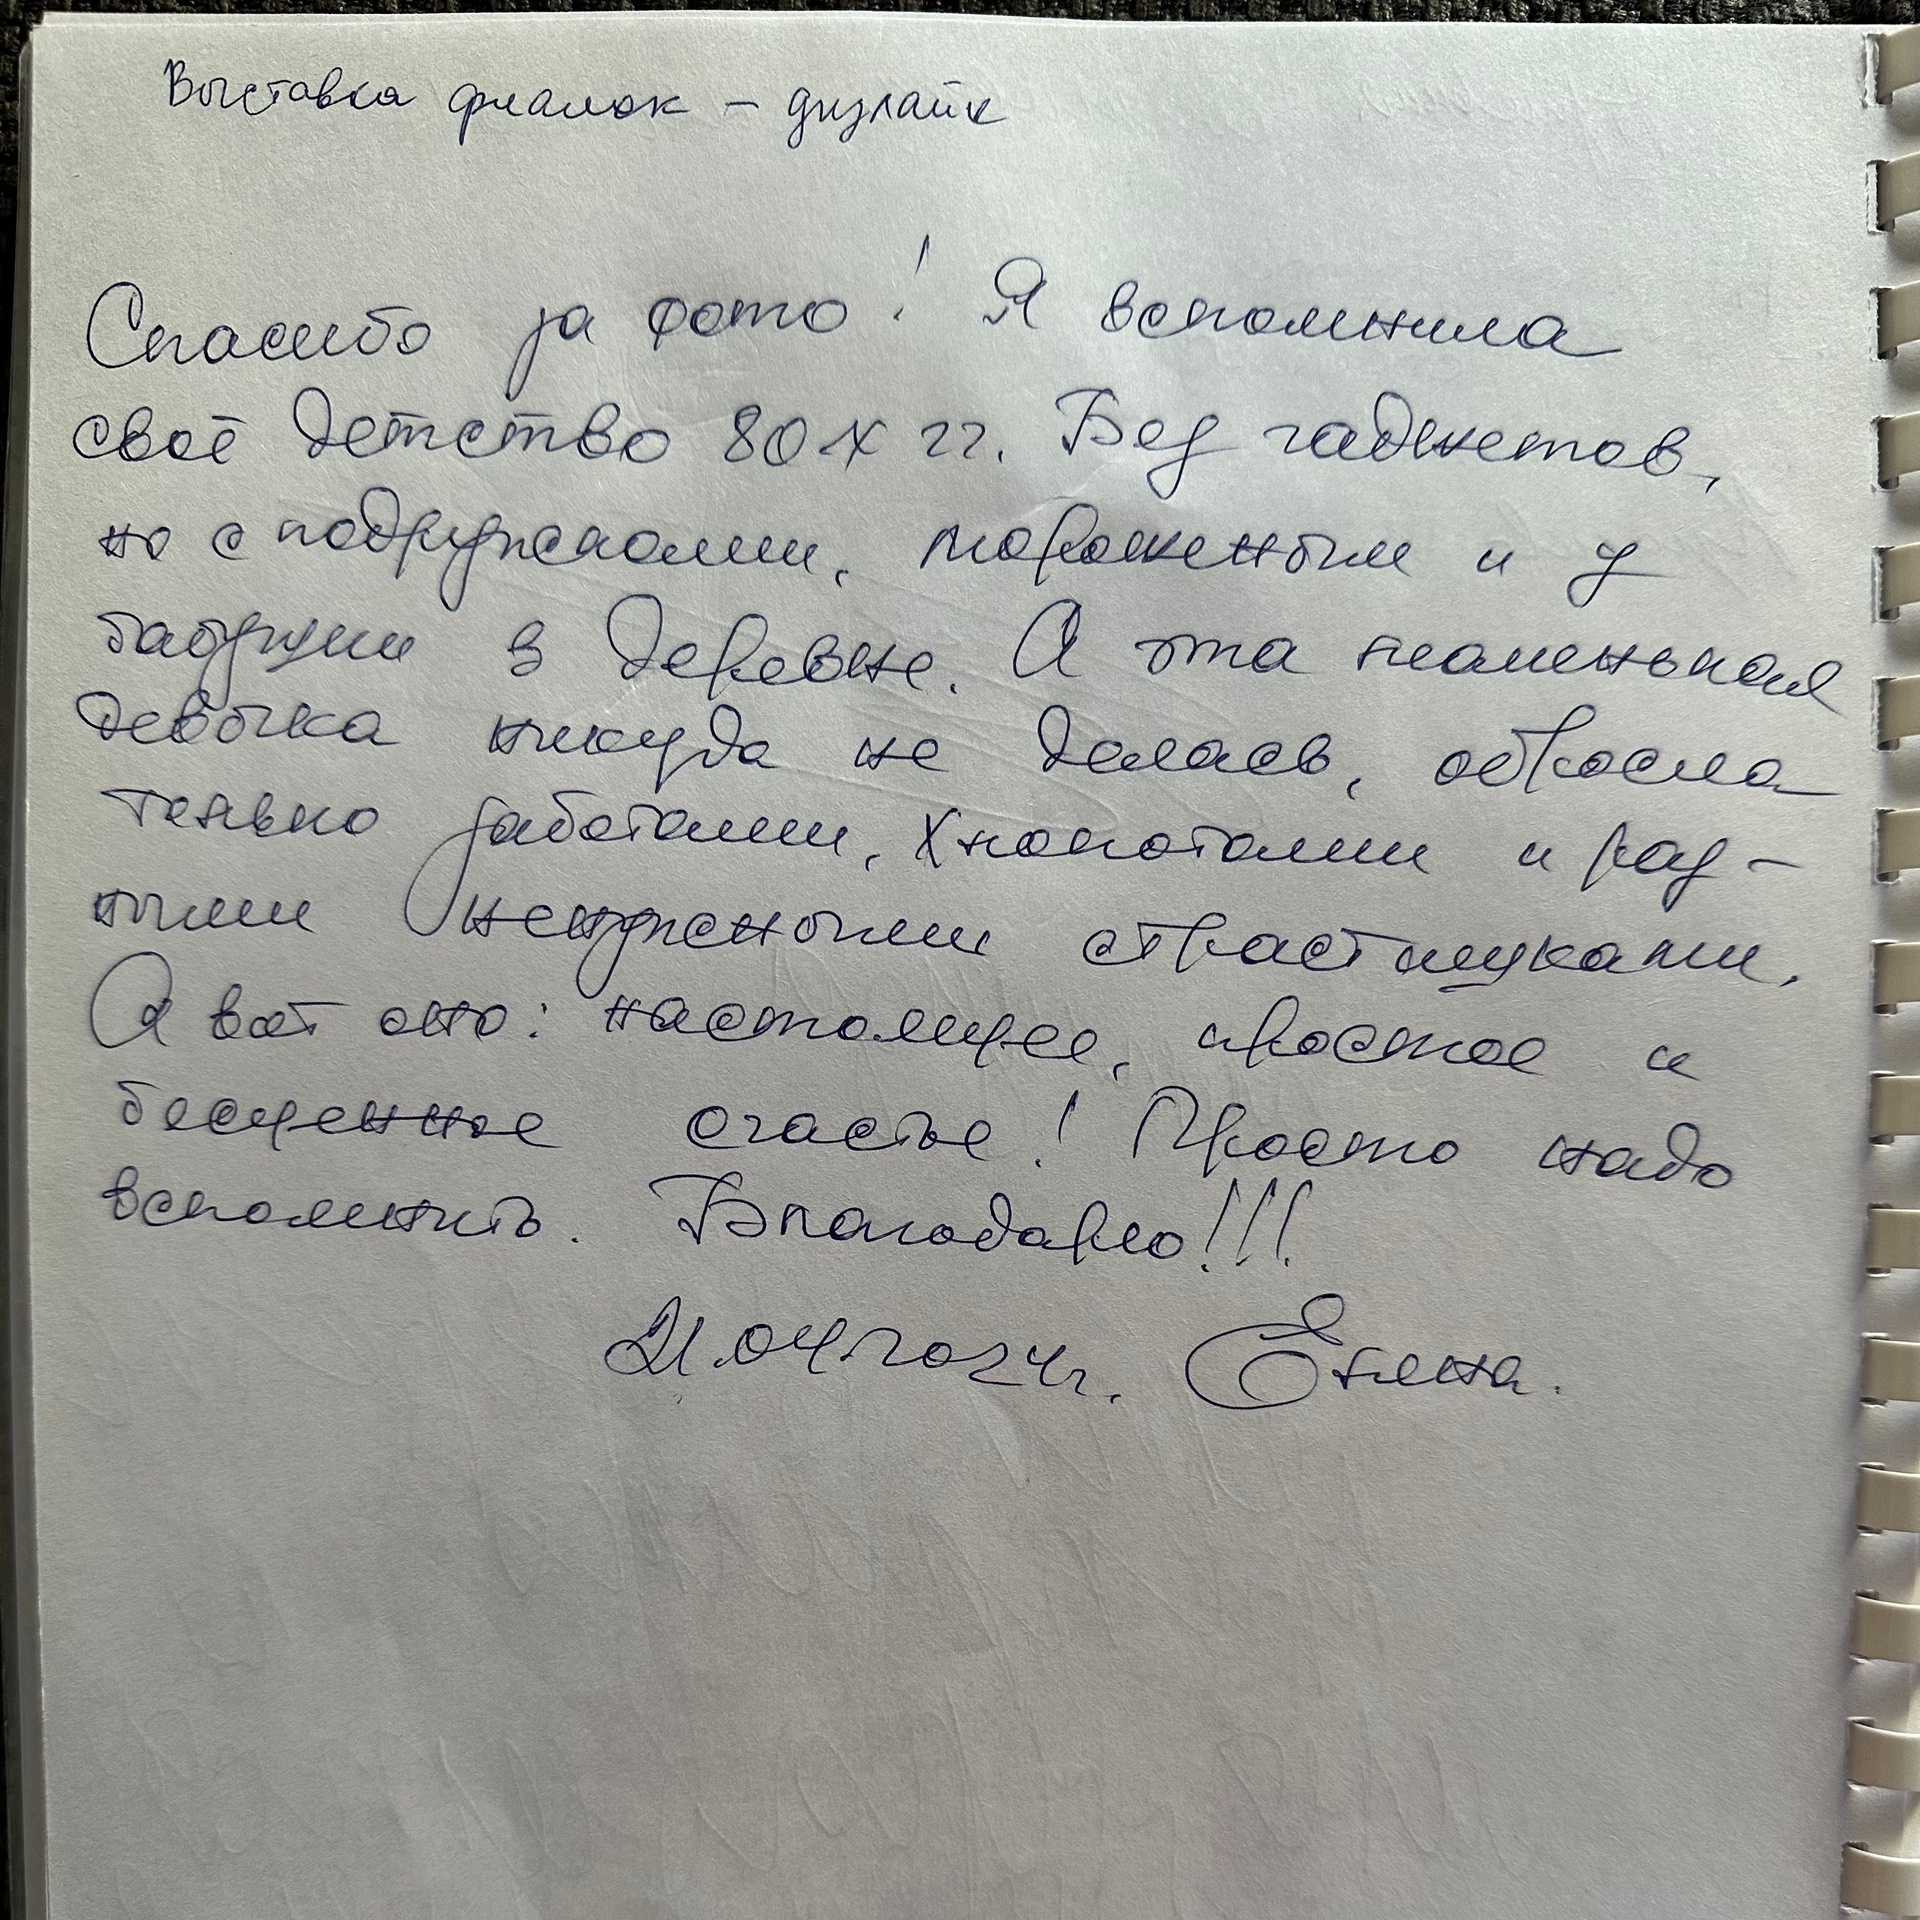 Выставка фиалок – дизлайк
Спасибо за фото! Я вспомнила
своё детство 80х гг. Без гаджетов,
но с подружками, мороженым и у
бабушки в деревне. А эта маленькая
девочка никуда не делась, обросла
только заботами, хлопотами и раз-
ными ненужеными страстишуками.
А вот оно: настоящее, простое и
бесценное счастье! Просто надо
вспомнить. Благодарю!!!
21.04.2024г. Елена.